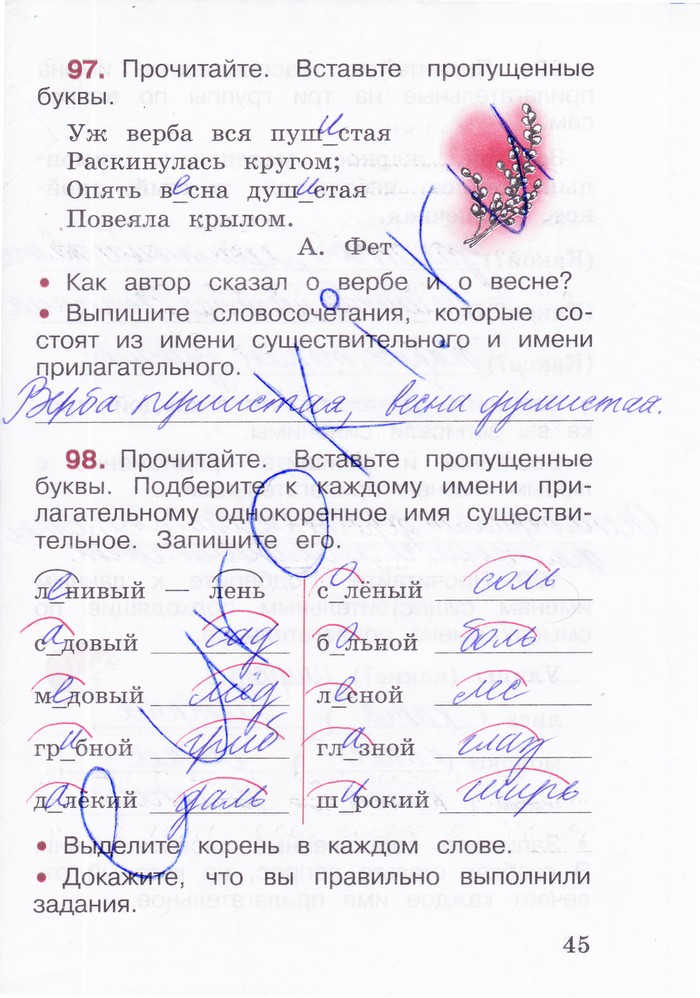 97. Прочитайте. Вставьте пропущенные
буквы.
Уж верба вся пушистая
Раскинулась кругом;
Опять весна душистая
Повеяла крылом.
А. Фет
• Как автор сказал о вербе и о весне?
• Выпишите словосочетания, которые со-
стоят из имени существительного и имени
прилагательного.
Верба пушистая, весна душистая.
98. Прочитайте. Вставьте пропущенные
буквы. Подберите к каждому имени при-
лагательному однокоренное имя существи-
тельное. Запишите его.
ленивый — лень солёный соль
садовый сад больной боль
медовый мёд лесной лес
грибной гриб глазной глаз
далёкий даль широкий ширь
• Выделите корень в каждом слове.
• Докажите, что вы правильно выполнили
задания.
45